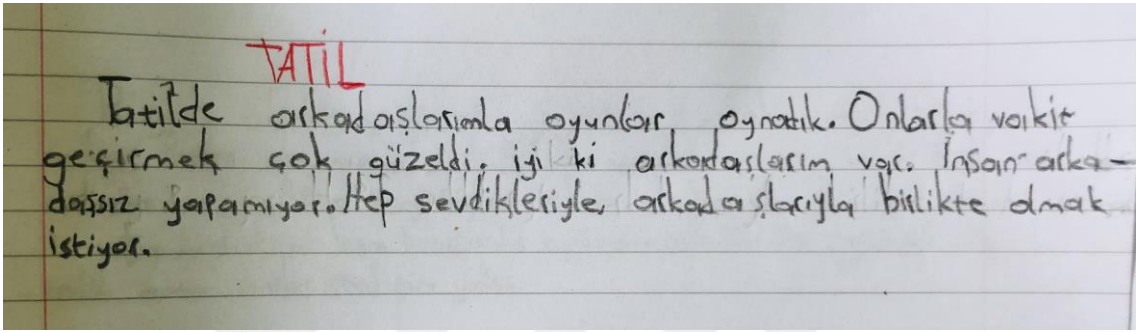 TATİL
Tatilde arkadaşlarımla oyunlar oynadık. Onlarla vakit
geçirmek çok güzeldi. iyi ki arkadaşlarım var. İnsan arka-
daşsız yapamıyor. Hep sevdikleriyle, arkadaşlarıyla birlikte olmak
istiyor.